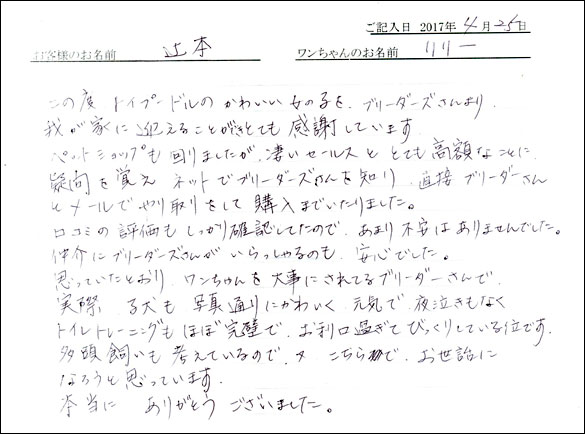 ご記入日 2017年 4月25日
お客様のお名前 辻本 ワンちゃんのお名前 リリー
この度、トイプードルの かわいい 女の子を、ブリーダーズさんより、
我が家に 迎えることができとても 感謝しています。
ペットショップも 回りましたが、凄いセールスと とても 高額なことに、
疑問を覚え ネットでブリーダーズさんを知り、直接 ブリーダーさん
とメールで やり取りをして 購入までいたりました。
口コミの 評価も しっかり確認してたので、あまり不安は ありませんでした。
仲介に ブリーダーズさんが いらっしゃるのも、安心でした。
思っていたとおり、ワンちゃんを 大事に されてる ブリーダーさんで、
実際 る犬も 写真通りにかわいく、元気で 夜泣きもなく
トイレトレーニングも ほぼ 完璧で、お利口過ぎて びっくりしている位です。
多頭飼いも 考えているので、又 こちらで、お世話に
なろうと 思っています。
本当に ありがとう ございました。